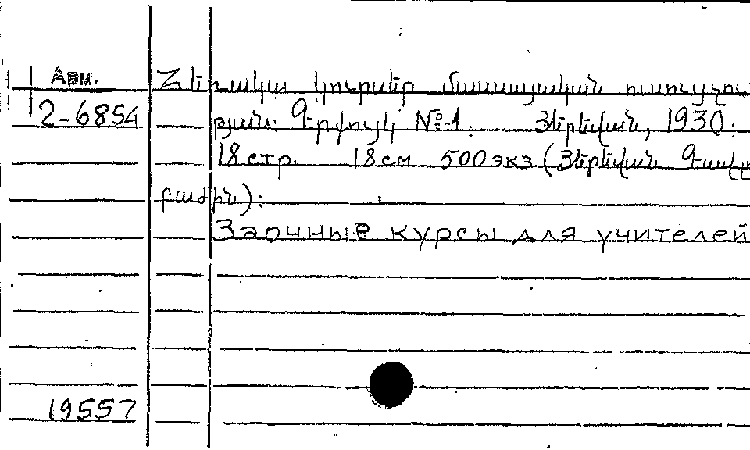 Арм.
2-6854
Հեռակա կուրսեր մասսայական ուսուցչու
թյան: Գրքույկ №-1. Յերեվան, 1930.
18стр. 18см 500экз (Յերեվան
բաժին):
Заочные курсы для учителей
19557